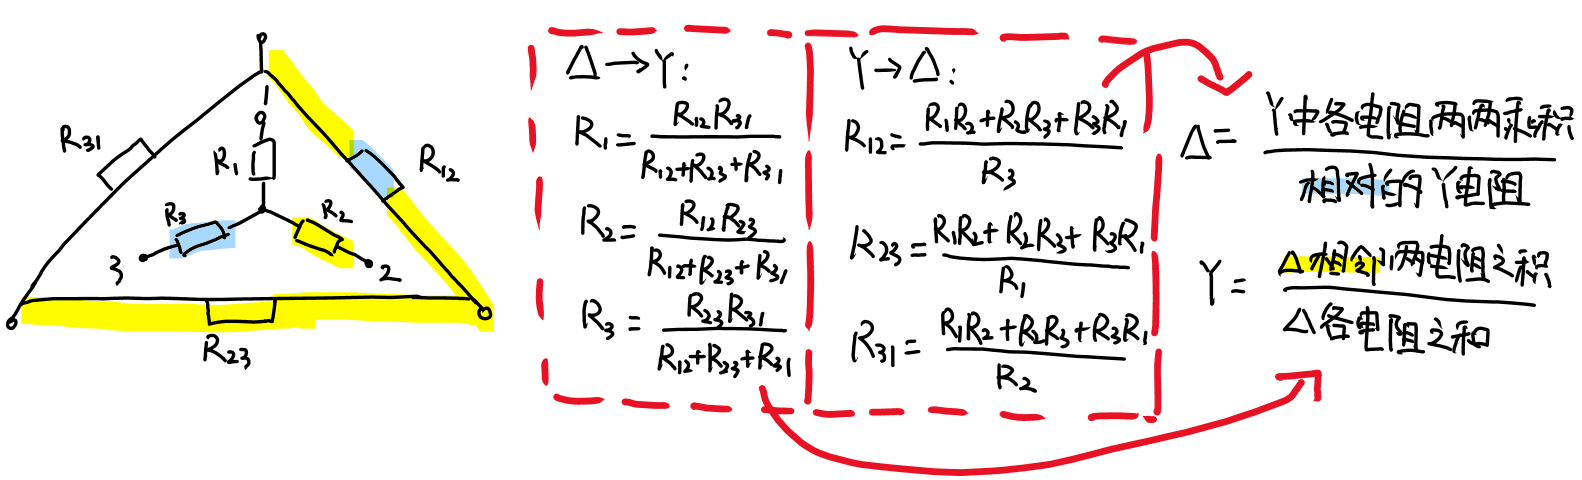 R31
R1
R12
R3
R2
3
2
R23
Δ→Y:
R1 = R12R31 / R12+R23+R31
R2 = R12R23 / R12+R23+R31
R3 = R23R31 / R12+R23+R31
Y→Δ:
R12 = R1R2+R2R3+R3R1 / R3
R23 = R1R2+R2R3+R3R1 / R1
R31 = R1R2+R2R3+R3R1 / R2
Δ = Y中各电阻两两乘积 / 相对的Y电阻
Y = Δ相邻两电阻之积 / Δ各电阻之和